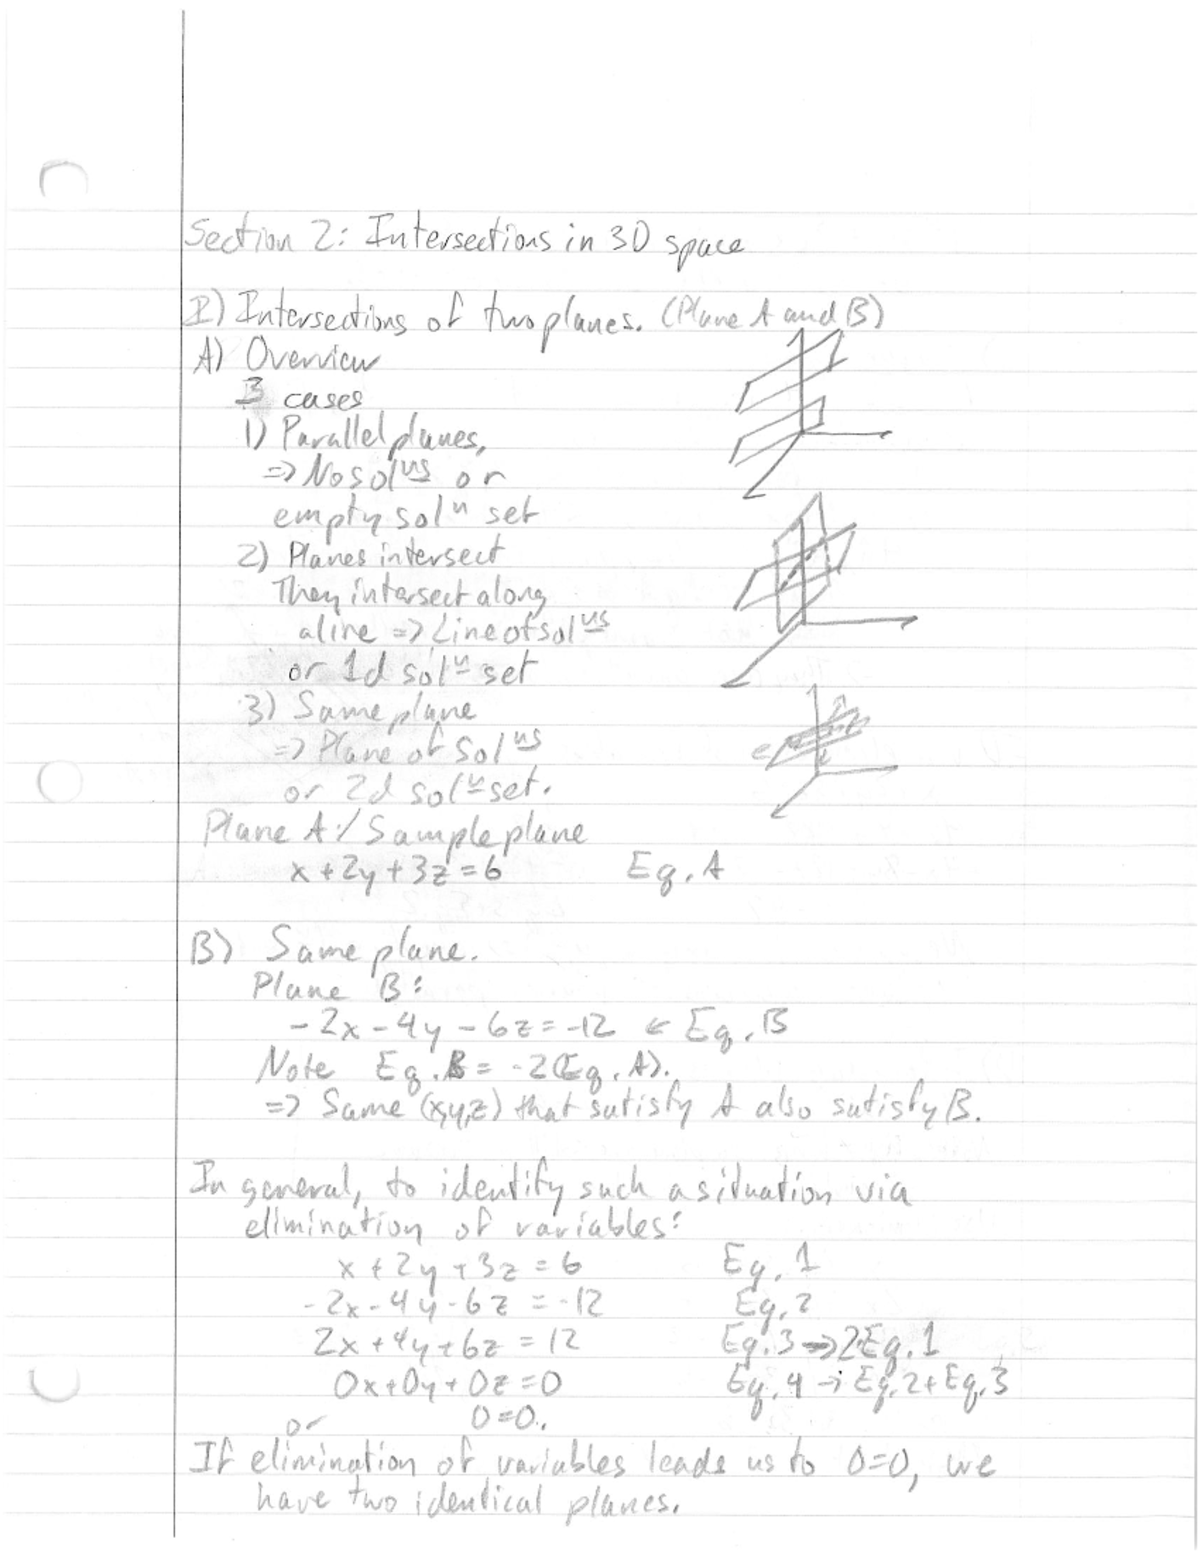 Section 2: Intersections in 3D space
I) Intersections of two planes. (Plane A and B)
A) Overview
3 cases
1) Parallel planes,
=> No solns or
empty soln set
2) Planes intersect
They intersect along
a line => Line of solns
or 1d soln set
3) Same plane
=> Plane of solns
or 2d soln set.
Plane A:/Sample plane
x + 2y + 3z = 6 Eq. A
B) Same plane.
Plane B:
-2x - 4y - 6z = -12 ← Eq. B
Note Eq. B = -2(Eq. A).
=> Same (x,y,z) that satisfy A also satisfy B.
In general, to identify such a situation via
elimination of variables:
x + 2y + 3z = 6 Eq. 1
-2x - 4y - 6z = -12 Eq. 2
2x + 4y + 6z = 12 Eq. 3 → 2·Eq. 1
0x + 0y + 0z = 0 Eq. 4 → Eq. 2 + Eq. 3
or 0 = 0.
If elimination of variables leads us to 0=0, we
have two identical planes.